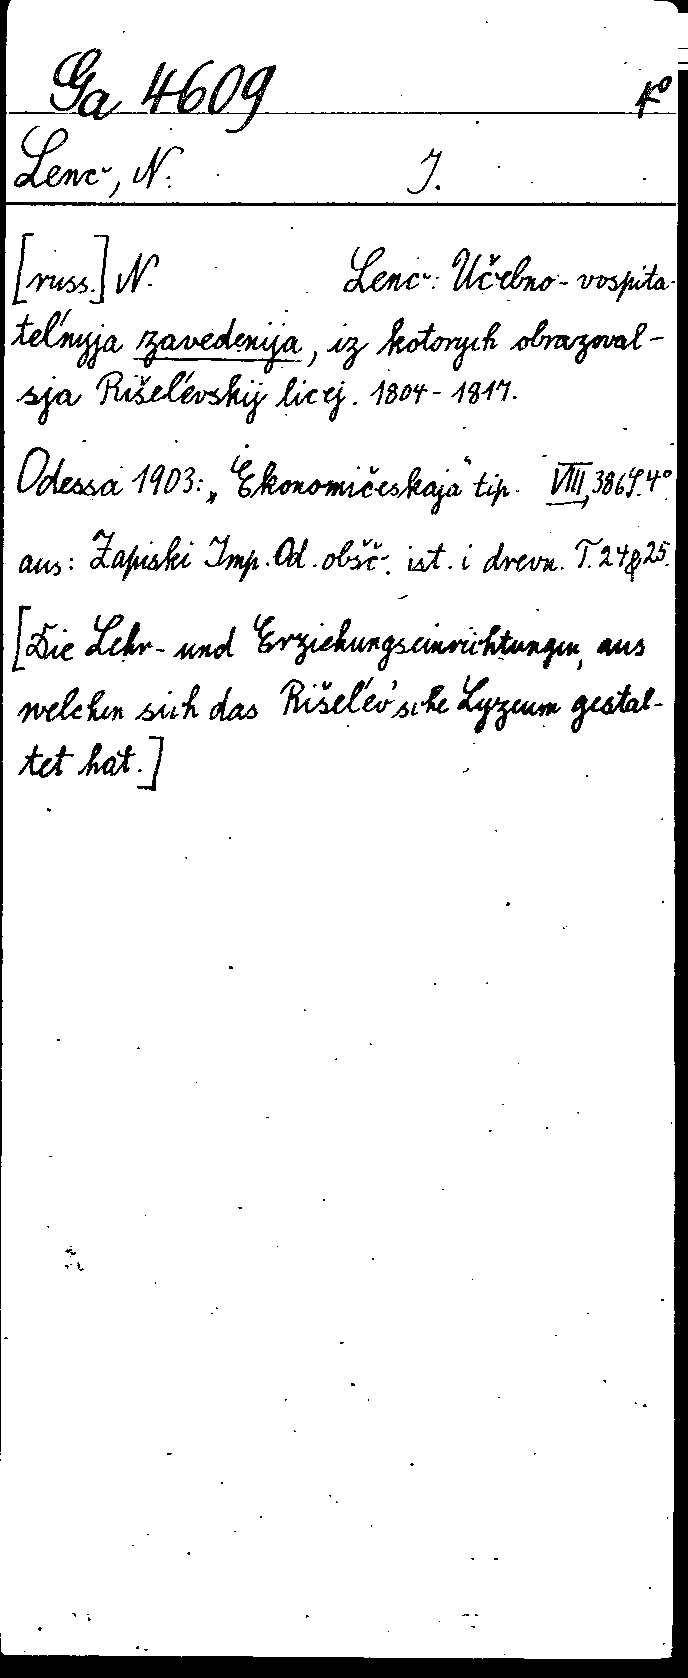 Ga 4609 4°
Lenc̆, N. I.
[russ.] N. Lenc̆: Učebno-vospita-
tel'nyja zavedenija, iz kotorych obrazoval-
sja Rišel'evskij licej. 1804-1817.
Odessa 1903: „Ekonomičeskaja“ tip. VIII, 386 S. 4°
aus: Zapiski Imp. Od. obšč. ist. i drevn. T. 24 & 25.
[Die Lehr- und Erziehungseinrichtungen, aus
welchen sich das Rišel'ev'sche Lyzeum gestal-
tet hat.]